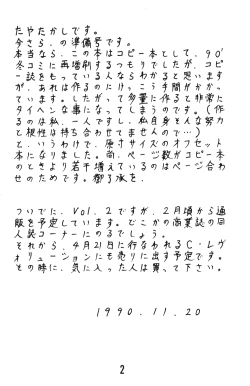 たやたかしです。
今さら、の準備号です。
本当なら、この本はコピー本として、90'
冬コミに再増刷するつもりでしたが、コピ
ー誌をもっている人ならわかると思います
が、あれは作るのにけっこう手間がかかっ
ています。したがって多量に作ると非常に
タイヘンな事になってしまうのです。(作
るのは私、一人ですし、私自身そんな努力
と根性は持ち合わせてませんので…)
と、いうわけで、原寸サイズのオフセット
本になりました。尚、ページ数がコピー本
のときより若干増えているのはページ合わ
せのためです。御了承を。
ついでに、Vol.2ですが、2月頃から通
販を予定しています。どこかの商業誌の同
人誌コーナーにのるでしょう。
それから、4月21日に行なわれるC・レヴ
ォリューションにも売りに出す予定です。
その時に、気に入った人は買って下さい。
1990.11.20
2